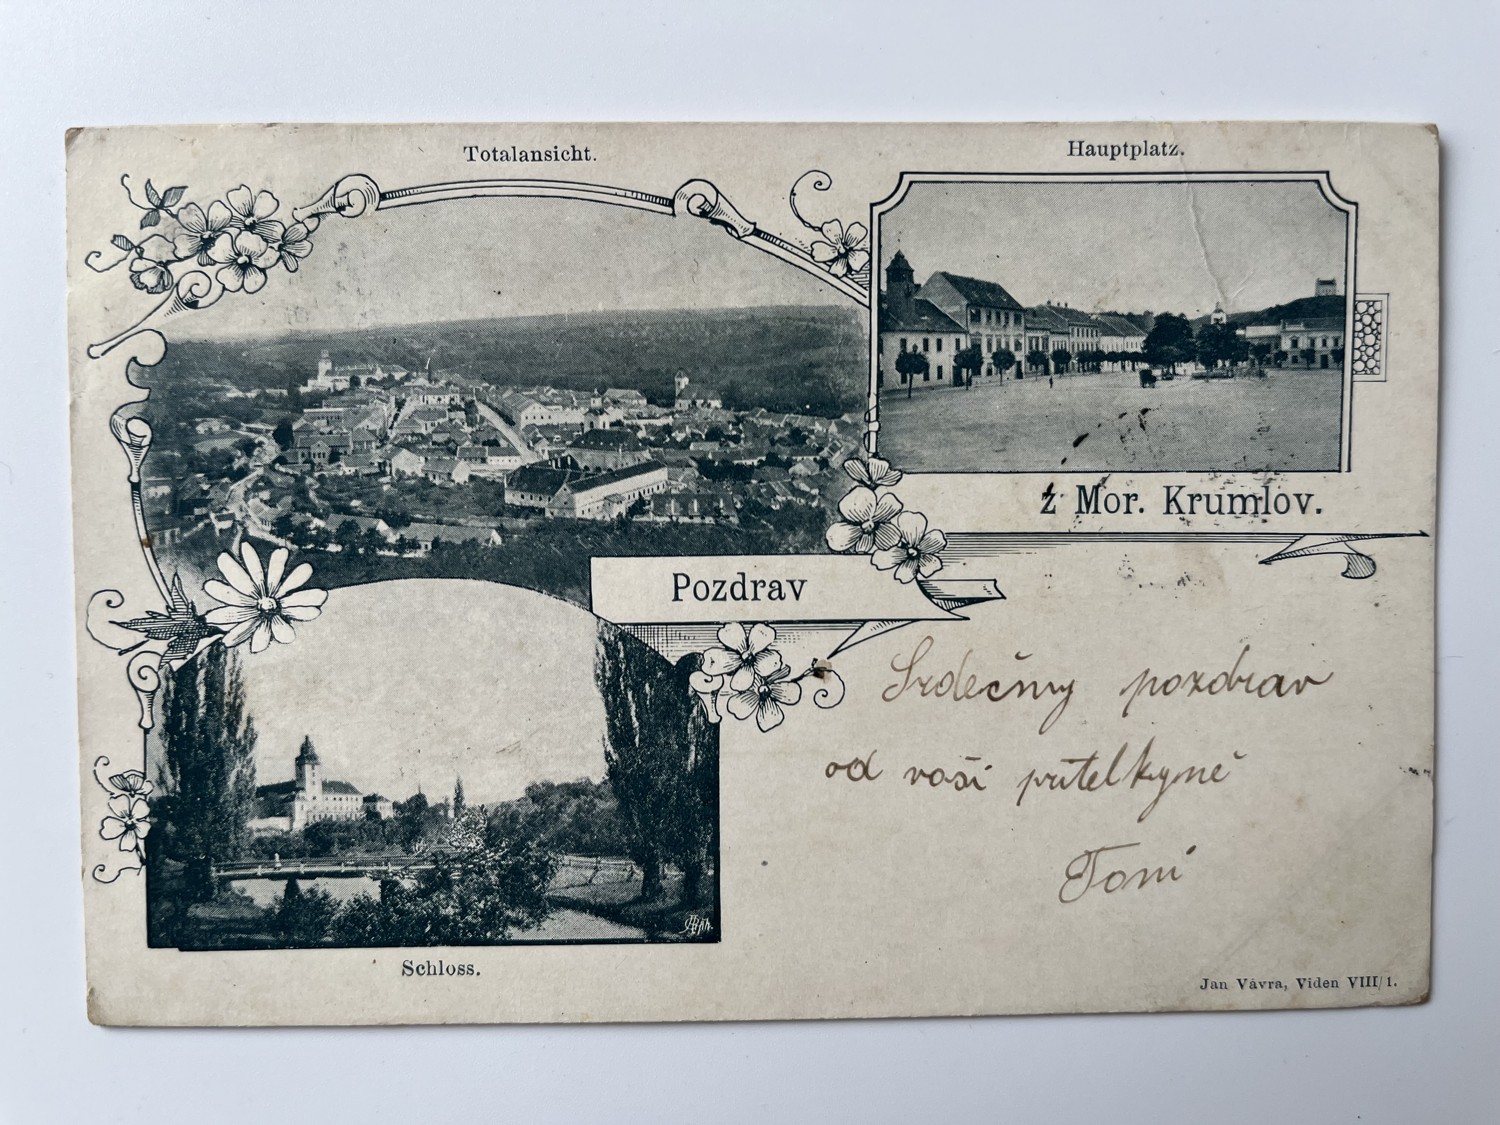 Totalansicht.
Hauptplatz.
Pozdrav
z Mor. Krumlov.
Srdečný pozdrav
od vaší přítelkyně
Toni
Schloss.
Jan Vávra, Viden VIII/1.